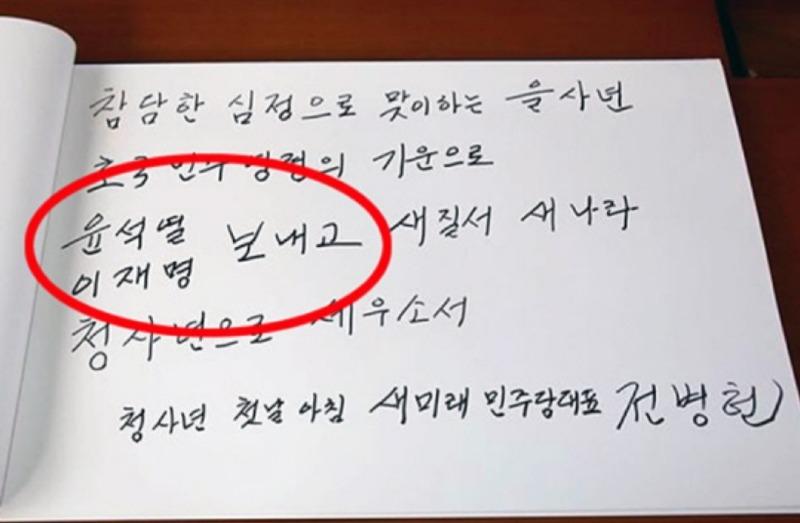 참담한 심정으로 맞이하는 을사년
호국민주영정의 기운으로
윤석열 보내고 새질서 새나라
이재명
청사년으로 세우소서
청사년 첫날 아침 새미래 민주당대표 전병헌